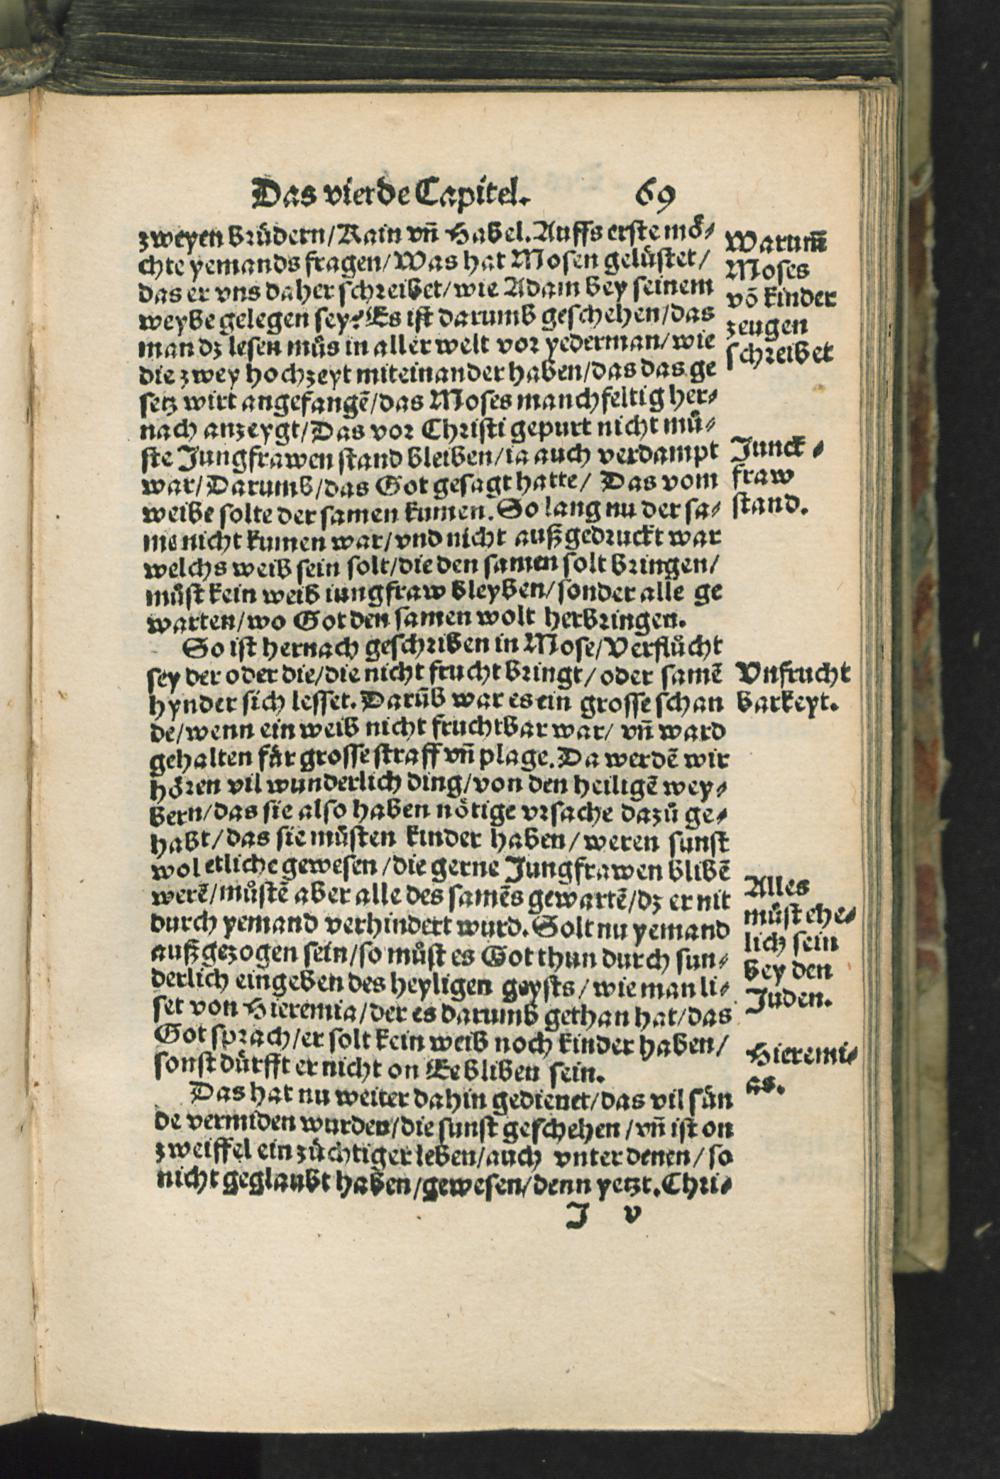 Das vierde Capitel. 69
zweyen brüdern/Kain vñ Habel. Auffs erste mö⸗
chte yemands fragen/Was hat Mosen gelüstet/
das er vns daher schreibet/wie Adam bey seinem
weybe gelegen sey? Es ist darumb geschehen/das
man dz lesen mûs in aller welt vor yederman/wie
die zwey hochzeyt miteinander haben/das das ge
setz wirt angefangẽ/das Moses manchfeltig her⸗
nach anzeygt/Das vor Christi gepurt nicht mü⸗
ste Jungfrawen stand bleiben/ia auch verdampt
war/Darumb/das Got gesagt hatte/ Das vom
weibe solte der samen kumen. So lang nu der sa⸗
me nicht kumen war/vnd nicht außgedruckt war
welchs weib sein solt/die den samen solt bringen/
müst kein weib iungfraw bleyben/sonder alle ge
warten/wo Got den samen wolt herbringen.
So ist hernach geschriben in Mose/Verflücht
sey der oder die/die nicht frucht bringt/oder samẽ
hynder sich lesset. Darũb war es ein grosse schan
de/wenn ein weib nicht fruchtbar war/ vñ ward
gehalten für grosse straff vñ plage. Da werdẽ wir
hören vil wunderlich ding/von den heiligẽ wey⸗
bern/das sie also haben nötige vrsache dazů ge⸗
habt/das sie müsten kinder haben/weren sunst
wol etliche gewesen/die gerne Jungfrawen blibẽ
werẽ/müstẽ aber alle des samẽs gewartẽ/dz er nit
durch yemand verhindert wurd. Solt nu yemand
außgezogen sein/so müst es Got thun durch sun⸗
derlich eingeben des heyligen geysts/wie man li⸗
set von Hieremia/der es darumb gethan hat/das
Got sprach/er solt kein weib noch kinder haben/
sonst dürfft er nicht on Ee bliben sein.
Das hat nu weiter dahin gedienet/das vil sün
de vermiden wurden/die sunst geschehen/vñ ist on
zweiffel ein züchtiger leben/auch vnter denen/so
nicht geglaubt haben/gewesen/denn yetzt. Chri⸗
J v
Warum̃
Moses
võ kinder
zeugen
schreibet
Junck⸗
fraw
stand.
Vnfrucht
barkeyt.
Alles
müst ehe⸗
lich sein
bey den
Juden.
Hieremi⸗
as.